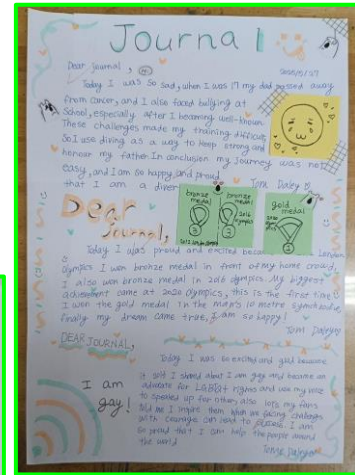 Journal
Dear journal,
Today I was so sad, when I was 17 my dad passed away
from cancer, and I also faced bullying at
School, especially after I becoming well-known.
These challenges made my training difficult,
So I use diving as a way to keep strong and
honour my father. In conclusion my journey was not
easy, and I am so happy and proud
that I am a diver
Tom Daley
bronze medal
bronze medal
2016 olympics
gold medal
3
3
1
Dear
Journal,
Today I was proud and excited because London
Olympics I won bronze medal in front of my home crowd,
I also won bronze medal in 2016 olympics. My biggest
came at 2020 olympics, this is the first time
I won the gold medal in the man's 10 metre synchronised
finally my dream came true, I am so happy!
Tom Daley
DEAR JOURNAL,
Today I was so excited and glad because
I am
gay!
I am gay and became an
advocate for rights and use my voice
to speaked up for others, also lets my fans
told me I inspire them when we facing challenges
with courage can lead to I am
so proud that I can help the people around
the world